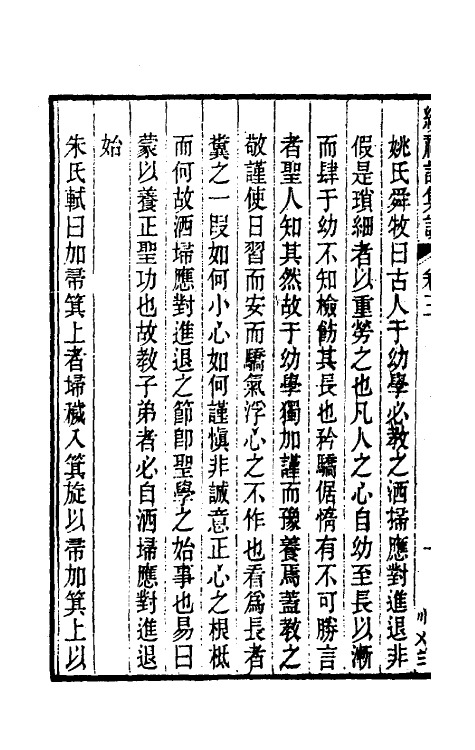 姚氏舜牧曰古人于幼學必教之洒掃應對進退非
假是瑣細者以重勞之也凡人之心自幼至長以漸
而肆于幼不知檢飭其長也矜驕倨惰有不可勝言
者聖人知其然故于幼學獨加謹而豫養焉蓋教之
敬謹使日習而安而驕氣浮心之不作也看爲長者
糞之一叚如何小心如何謹愼非誠意正心之根柢
而何故洒埽應對進退之節卽聖學之始事也易曰
蒙以養正聖功也故教子弟者必自洒埽應對進退
始
朱氏軾曰加帚箕上者埽穢入箕旋以帚加箕上以